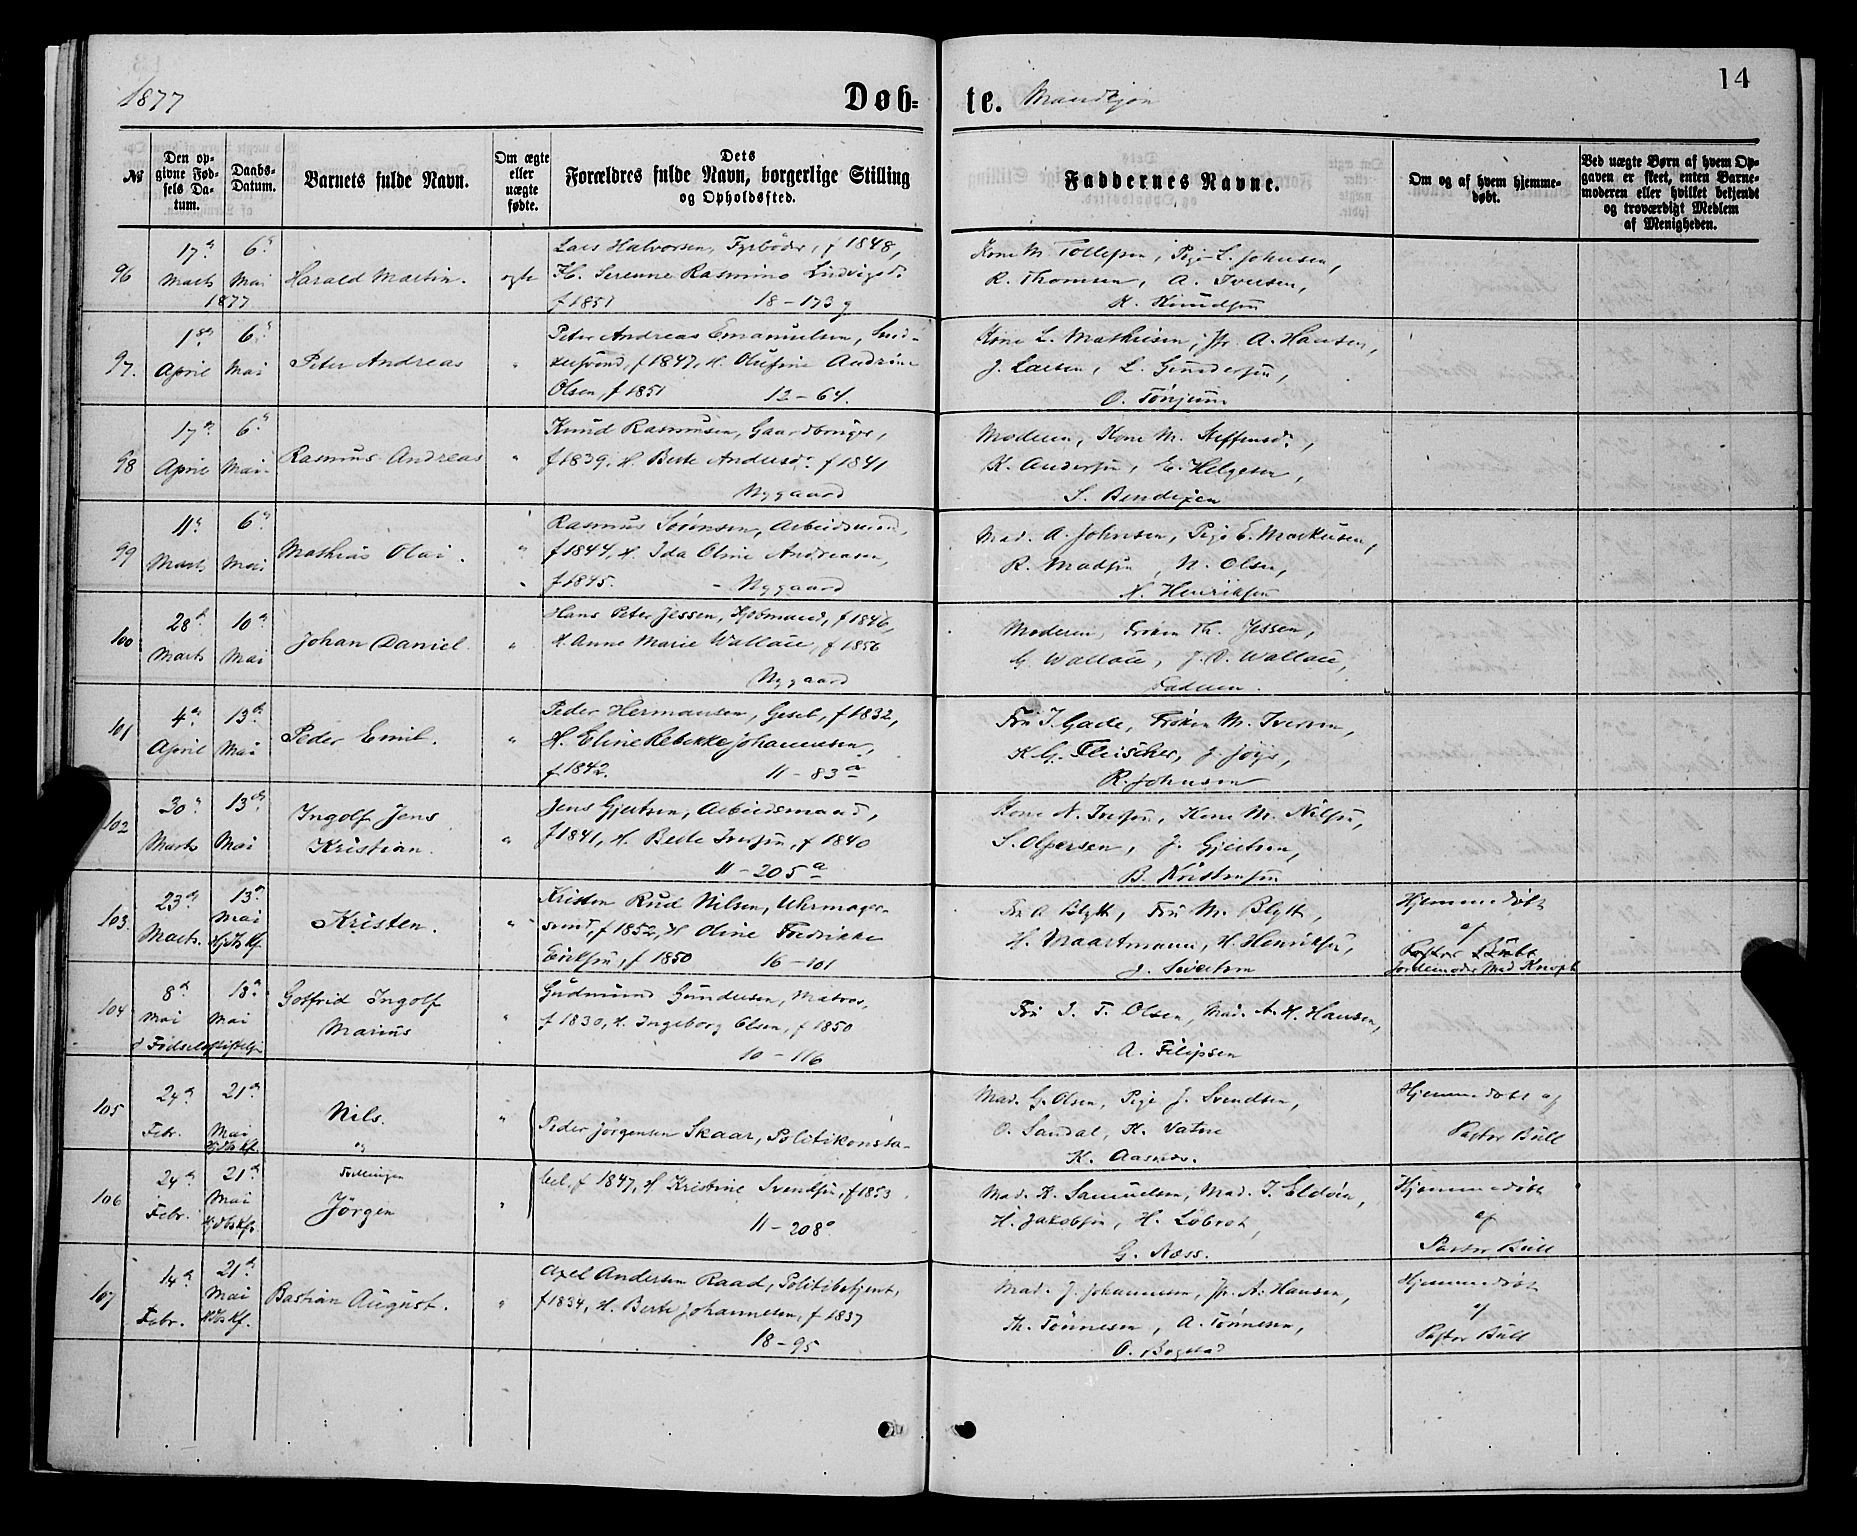 1877
Døb=
te.
Mandkjøn
14
№
Den op-
givne Fød-
sels Da-
tum.
Daabs-
Datum.
Barnets fulde Navn.
Om ægte
eller
uægte
fødte.
Dets
Forældres fulde Navn, borgerlige Stilling
og Opholdssted.
Faddernes Navne.
Om og af hvem hjemme-
døbt.
Ved uægte Børn af hvem Op-
gaven er skeet, enten Barne-
moderen eller hvilket bekjendt
og troværdigt Medlem
af Menigheden.
96
17de
Marts
1877
6te
Mai
Harald Martin.
ægte
Lars Halvorsen, Fyrbøder, f 1848,
H. Serenne Rasmine Ludvigsd.
f 1851 18-173 g
Kone M. Tollefsen, Pige L. Johnsen,
R. Thomsen, A. Iversen,
K. Knudsen
97.
1ste
April
6te
Mai
Peter Andreas
"
Peter Andreas Emanuelsen, Snd-
kersvend, f 1847, H. Olufine Andrine
Olsen, f 1851 12-64.
Kone L. Mathisen, Jfr. A. Hansen,
J. Larsen, L. Gundersen,
O. Tønjum
98
17de
April
6te
Mai
Rasmus Andreas
"
Knud Rasmussen, Gaardbruger,
f 1839, H. Berte Andersd. f 1841
Nygaard
Moderen, Kone M. Steffensd.,
K. Andersen, E. Helgesen,
S. Bendixen
99
11te
Marts
6te
Mai
Mathias Olai.
"
Rasmus Sørensen, Arbeidsmand,
f 1844, H. Ida Oline Andreasen,
f 1845. - Nygaard
Mad. A. Johnsen, Pige E. Markusen,
R. Madsen, N. Olsen,
N. Henriksen
100
28de
Marts
10de
Mai
Johan Daniel.
"
Hans Peter Jessen, Kjøbmand, f 1846,
H. Anne Marie Wallace, f 1856
Nygaard
Moderen, Frøken Th. Jessen,
G. Wallace, J. D. Wallace,
Faderen.
101
4de
April
13de
Mai
Peder Emil.
"
Peder Hermansen, Gesel, f 1832,
H. Eline Rebekke Johannesen,
f 1842. 11-83 a
Fru I. Gade, Frøken M. Iversen,
K. G. Fleischer, J. Joys,
R. Johnsen
102
30te
Marts
13de
Mai
Ingolf Jens
Kristian.
"
Jens Gjertsen, Arbeidsmand,
f 1841, H. Berte Iversen, f 1840
11-205 a
Kone N. Iversen, Kone M. Nilsen,
S. Olpersen, J. Gjertsen,
B. Kristensen
103.
23de
Marts.
13de
Mai
Hjdbs Kf.
Kristen.
"
Kristen Rud Nilsen, Uhrmager-
svend, f 1852, H. Oline Fredrikke
Eriksen, f 1850 16-101
Fru A Blytt, Fru M. Blytt,
H. Maartmann, H. Henriksen,
J. Sivertsen
Hjemmedøbt
af
Jordemoder Mad Knoph
104
8de
Mai
18de
Mai
d Fødselsstiftelsen
Gotfrid Ingolf
Marius
"
Gudmund Gundersen, Matros,
f 1830, H. Ingeborg Olsen, f 1850
10-116
Fru I. F. Olsen, Mad. A. K. Hansen,
A. Filipsen
105
24de
Febr.
21de
Mai
Hjdbs Kf.
Nils.
og
"
Peder Jørgensen Skaar, Politikonsta-
Mad. G. Olsen, Pige J. Svendsen,
O. Sandal, K. Vatne
K. Aasnes.
Hjemmedøbt af
Pastor Bull
106
24de
Febr.
21de
Mai
Hjdbs Kf.
Tvillingen
Jørgen
"
bel, f 1847, H Kristine Svendsen, f 1853
11-208 a
Mad. K. Samuelsen, Mad. I. Eldøen,
H. Jakobsen, H. Løbrot,
G. Næss.
Hjemmedøbt
af
Pastor Bull
107
14de
Febr.
21de
Mai
Hjdbs Kf.
Bastian August.
"
Axel Andersen Raad, Politibetjent,
f 1834, H. Berte Johannesen, f 1837
18-95
Mad. J. Johannesen, Jfr. A. Hansen,
Th. Tønnesen, A. Tønnesen,
O. Bogstad
Hjemmedøbt
af
Pastor Bull